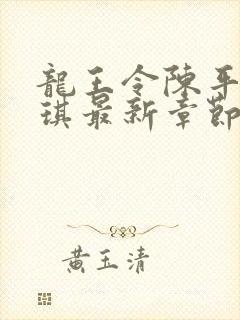 龍王令陳平
琪最新章節
黃玉清